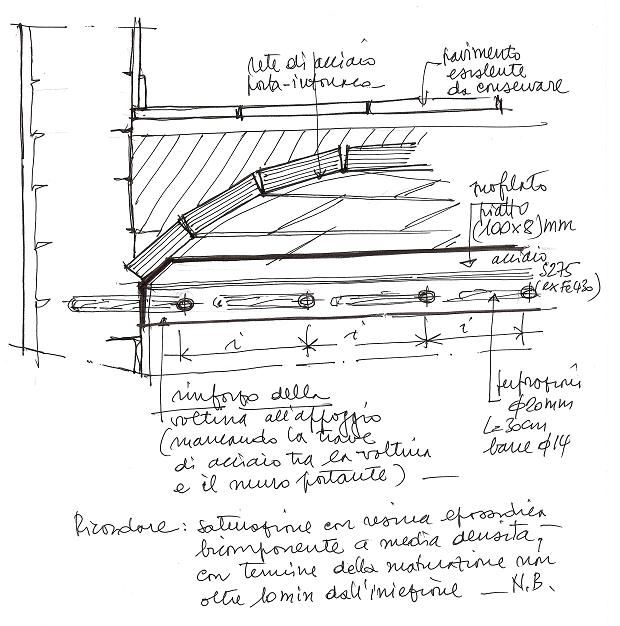 rete di acciaio
porta-intonaco
pavimento
esistente
da conservare
profilato
piatto
(100x8)mm
acciaio
S275
(ex Fe430)
i i i
perforazioni
Φ20mm
L=30cm
barre Φ14
rinforzo della
voltina all'appoggio
(mancando la trave
di acciaio tra la voltina
e il muro portante)
Ricordare: saturazione con resina epossidica
bicomponente a media densità,
con termine della maturazione non
oltre 10min dall'iniezione — N.B.